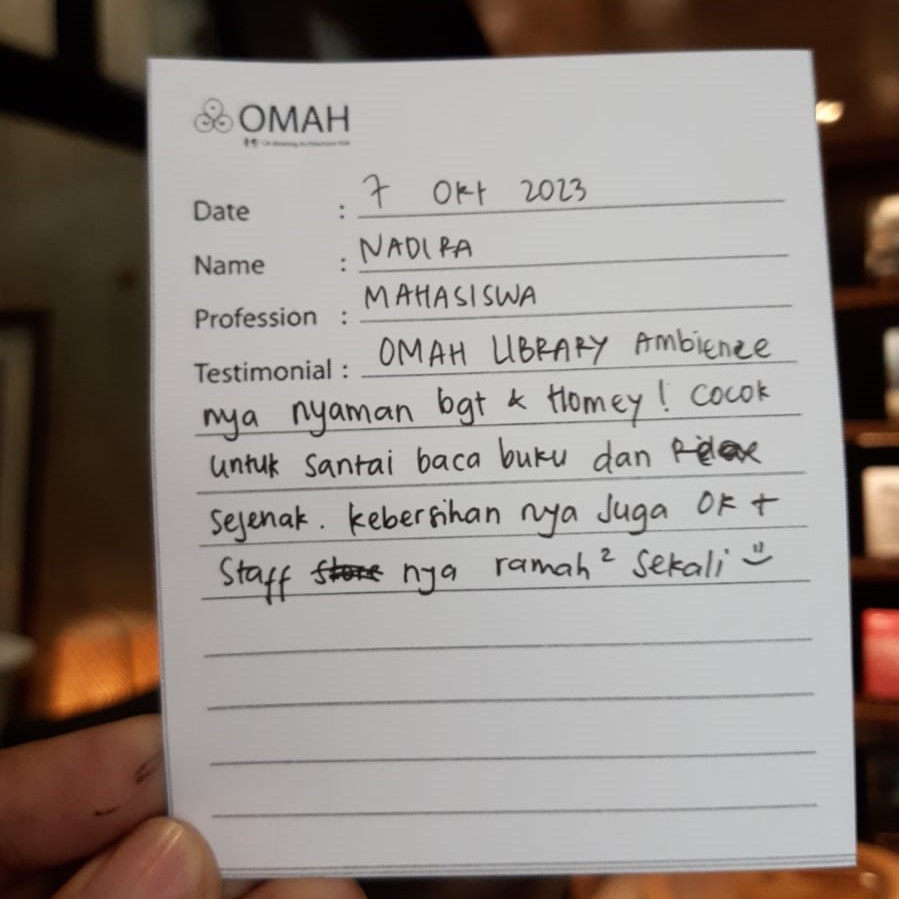 OMAH
Date : 7 Okt 2023
Name : NADIRA
Profession : MAHASISWA
Testimonial : OMAH LIBRARY Ambience
nya nyaman bgt & Homey! Cocok
untuk santai baca buku dan
sejenak. kebersihan nya Juga OK +
Staff store nya ramah² sekali